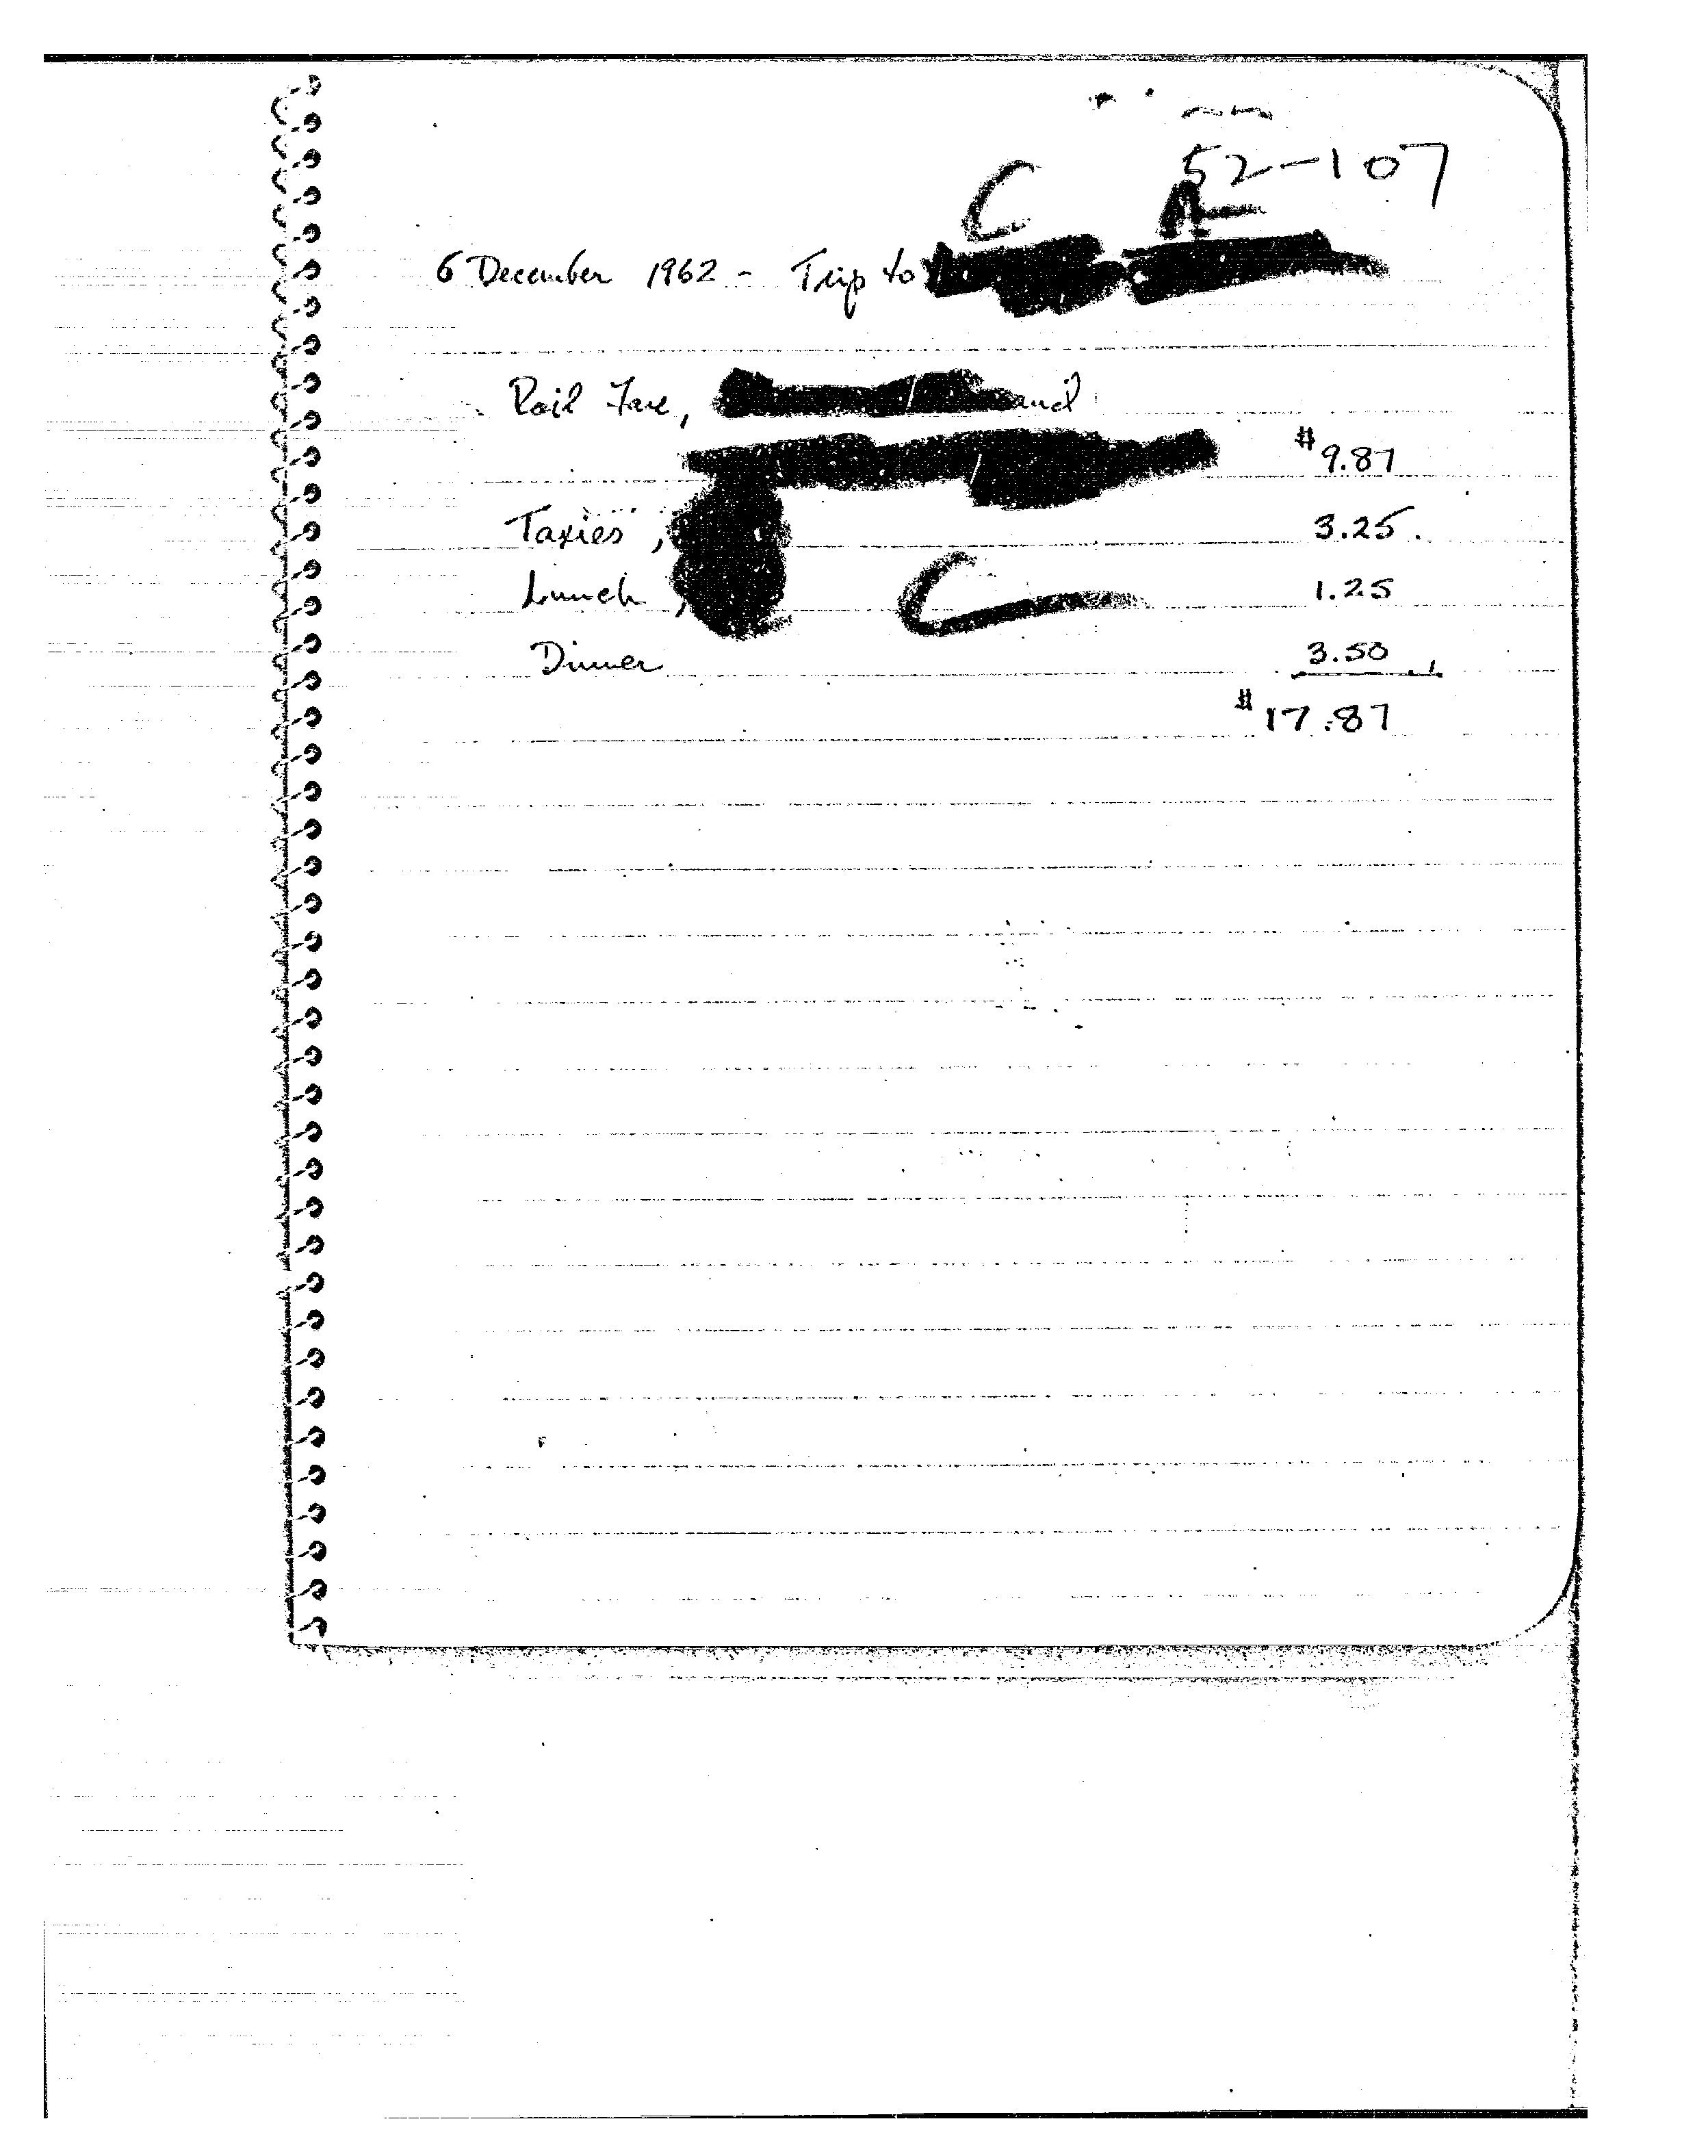 52-107
C A
6 December 1962 - Trip to
Rail Fare, and
$9.87
Taxies, 3.25.
Lunch, C 1.25
Dinner 3.50
$17.87